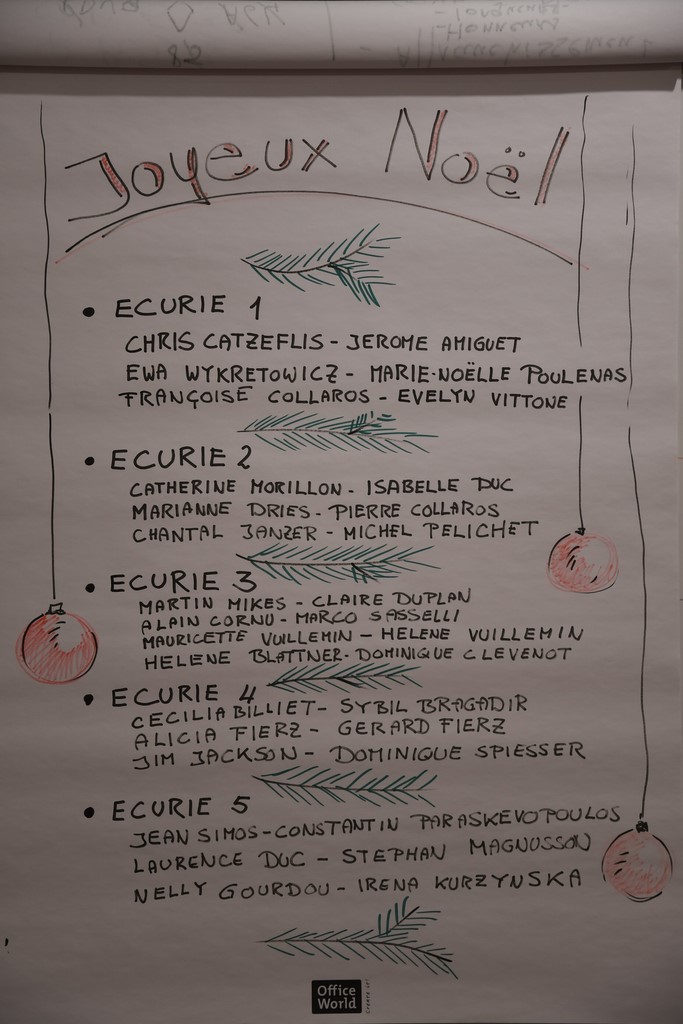 Joyeux Noël
• ECURIE 1
CHRIS CATZEFLIS - JEROME AMIGUET
EWA WYKRETOWICZ - MARIE-NOËLLE POULENAS
FRANÇOISE COLLAROS - EVELYN VITTONE
• ECURIE 2
CATHERINE MORILLON - ISABELLE DUC
MARIANNE DRIES - PIERRE COLLAROS
CHANTAL JANZER - MICHEL PELICHET
• ECURIE 3
MARTIN MIKES - CLAIRE DUPLAN
ALAIN CORNU - MARCO SASSELLI
MAURICETTE VUILLEMIN - HELENE VUILLEMIN
HELENE BLATTNER - DOMINIQUE CLEVENOT
• ECURIE 4
CECILIA BILLIET - SYBIL BRAGADIR
ALICIA FIERZ - GERARD FIERZ
JIM JACKSON - DOMINIQUE SPIESSER
• ECURIE 5
JEAN SIMOS - CONSTANTIN PARASKEVOPOULOS
LAURENCE DUC - STEPHAN MAGNUSSON
NELLY GOURDOU - IRENA KURZYNSKA
Office
World